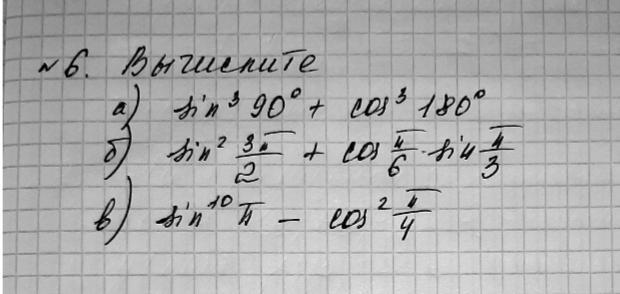 №6. Вычислите
а) sin³ 90° + cos³ 180°
б) sin² 3π/2 + cos π/6 · sin π/3
в) sin¹⁰ π - cos² π/4